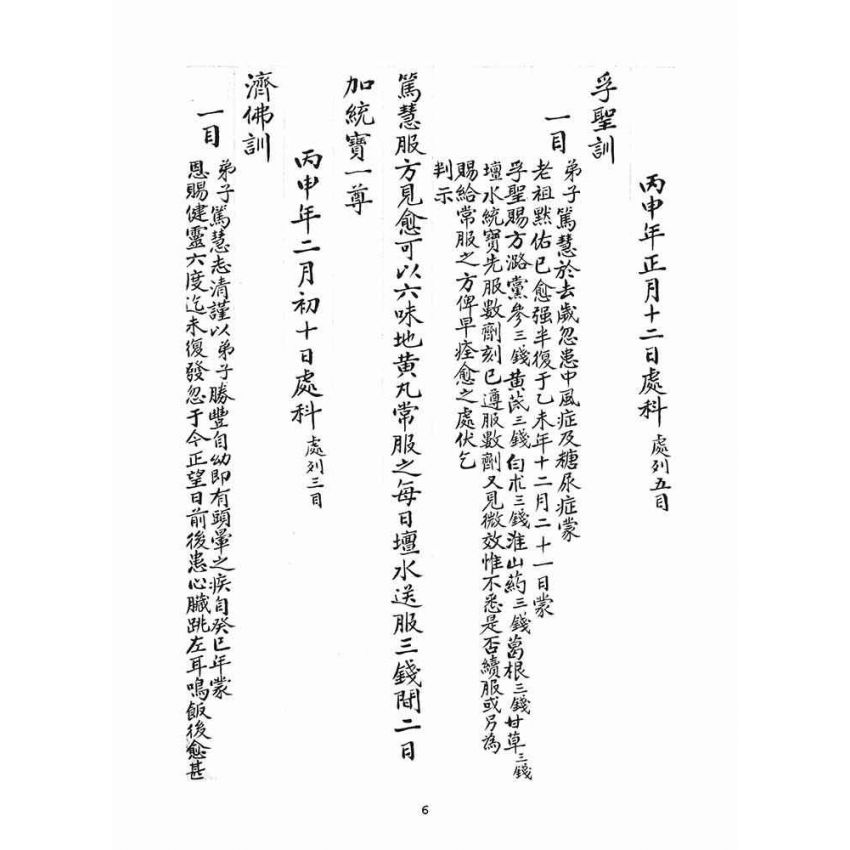 丙申年正月十二日處科 處列五目
孚聖訓
一目 弟子篤慧於去歲忽患中風症及糖尿症蒙
老祖黙佑已愈强半復于乙未年十二月二十一日蒙
孚聖賜方潞黨參三錢黄芪三錢白朮三錢淮山葯三錢葛根三錢甘草三錢
壇水統寶先服數劑刻已遵服數劑又見微效惟不悉是否續服或另為
賜給常服之方俾早痊愈之處伏乞
判示
篤慧服方見愈可以六味地黄丸常服之每日壇水送服三錢間二日
加統寶一尊
丙申年二月初十日處科 處列三目
濟佛訓
一目 弟子篤慧志清謹以弟子勝豐自幼即有頭暈之疾自癸巳年蒙
恩賜健靈六度迄未復發忽于今正望日前後患心臟跳左耳鳴飯後愈甚
6